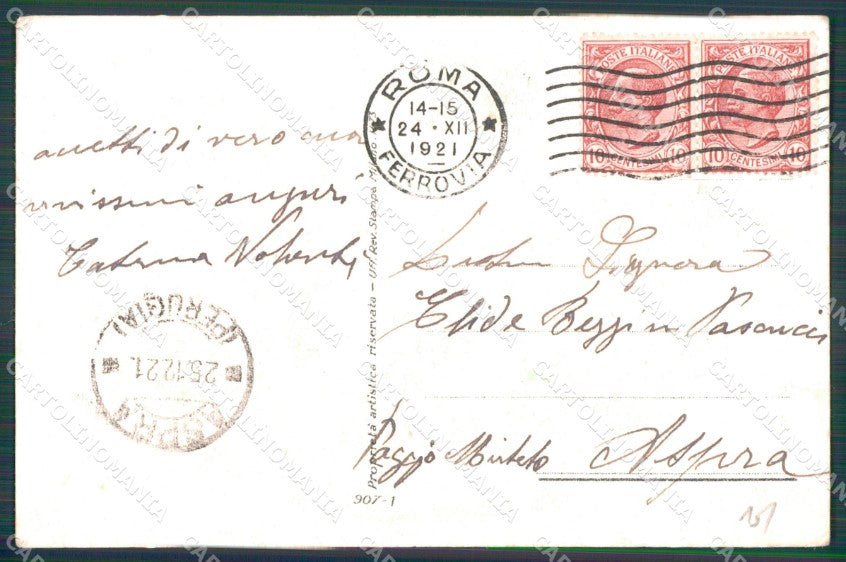 POSTE ITALIANE
10 CENTESIMI 10
POSTE ITALIANE
10 CENTESIMI 10
ROMA
14-15
24 · XII
1921
FERROVIA
accetti di vero cuore
vivissimi auguri
Caterina
Signora
Elide Bezzi in Pascucci
Poggio Mirteto Aspra
ASPRA
25.12.21.
(PERUGIA)
Proprietà artistica riservata - Uff. Rev. Stampa
907-1
CARTOLINOMANIA